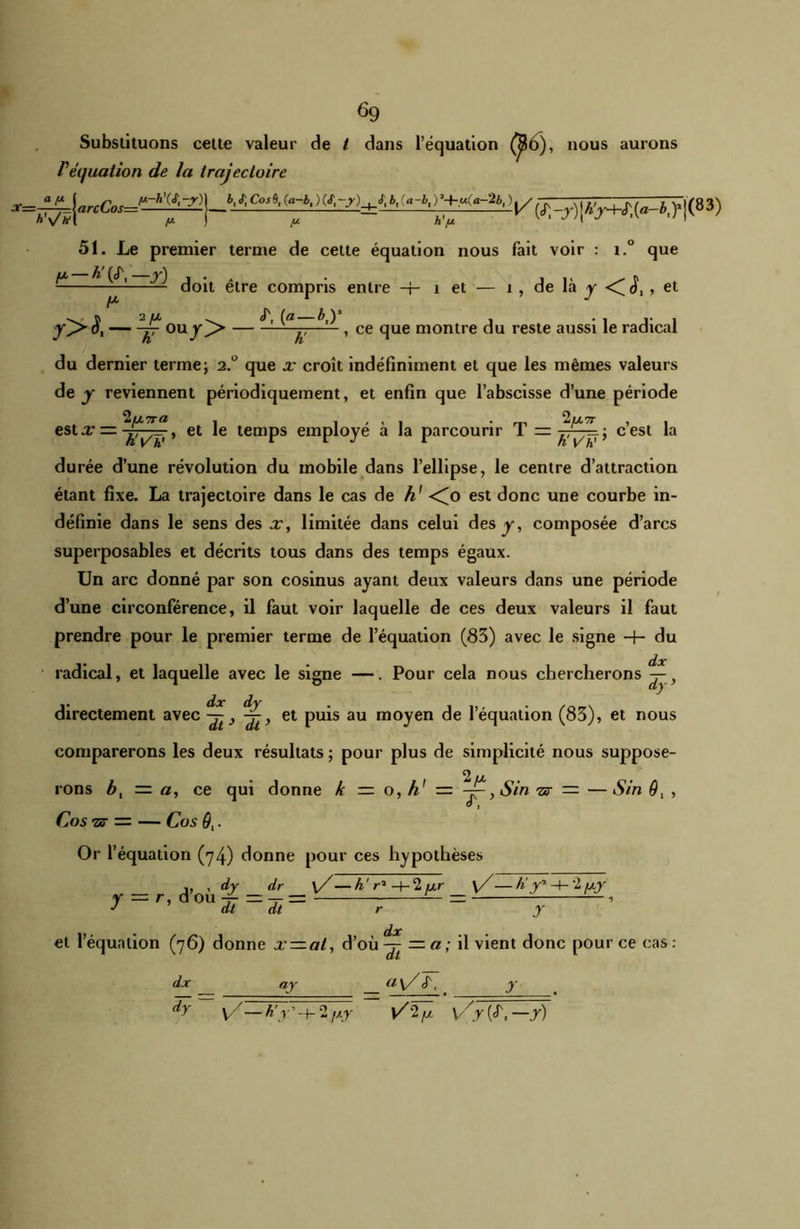 69
Substituons cette valeur de t dans l'équation (76), nous aurons
l'équation de la trajectoire
x = aμ/h'√h' {arcCos = μ—h'(δ₁—y)/μ} — b₁δ₁Cosθ₁(a—b₁)(δ₁—y)/μ ± δ₁b₁(a—b₁)²+μ(a—2b₁)/h'μ √(δ₁—y){h'y+δ₁(a—b₁)²}(83)
51. Le premier terme de cette équation nous fait voir : 1.° que
μ—h'(δ₁—y)/μ doit être compris entre + 1 et — 1, de là y < δ₁, et
y > δ₁ — 2μ/h' ou y > — δ₁(a—b₁)²/h', ce que montre du reste aussi le radical
du dernier terme; 2.° que x croît indéfiniment et que les mêmes valeurs
de y reviennent périodiquement, et enfin que l'abscisse d'une période
est x = 2μπa/h'√h', et le temps employé à la parcourir T = 2μπ/h'√h'; c'est la
durée d'une révolution du mobile dans l'ellipse, le centre d'attraction
étant fixe. La trajectoire dans le cas de h' < o est donc une courbe in-
définie dans le sens des x, limitée dans celui des y, composée d'arcs
superposables et décrits tous dans des temps égaux.
Un arc donné par son cosinus ayant deux valeurs dans une période
d'une circonférence, il faut voir laquelle de ces deux valeurs il faut
prendre pour le premier terme de l'équation (83) avec le signe + du
radical, et laquelle avec le signe —. Pour cela nous chercherons dx/dy,
directement avec dx/dt, dy/dt, et puis au moyen de l'équation (83), et nous
comparerons les deux résultats; pour plus de simplicité nous suppose-
rons b₁ = a, ce qui donne k = o, h' = 2μ/δ₁, Sin ϖ = — Sin θ₁,
Cos ϖ = — Cos θ₁.
Or l'équation (74) donne pour ces hypothèses
y = r, d'où dy/dt = dr/dt = √—h'r²+2μr/r = √—h'y²+2μy/y,
et l'équation (76) donne x=at, d'où dx/dt = a; il vient donc pour ce cas:
dx/dy = ay/√—h'y²+2μy = a√δ₁/√2μ . y/√y(δ₁—y).